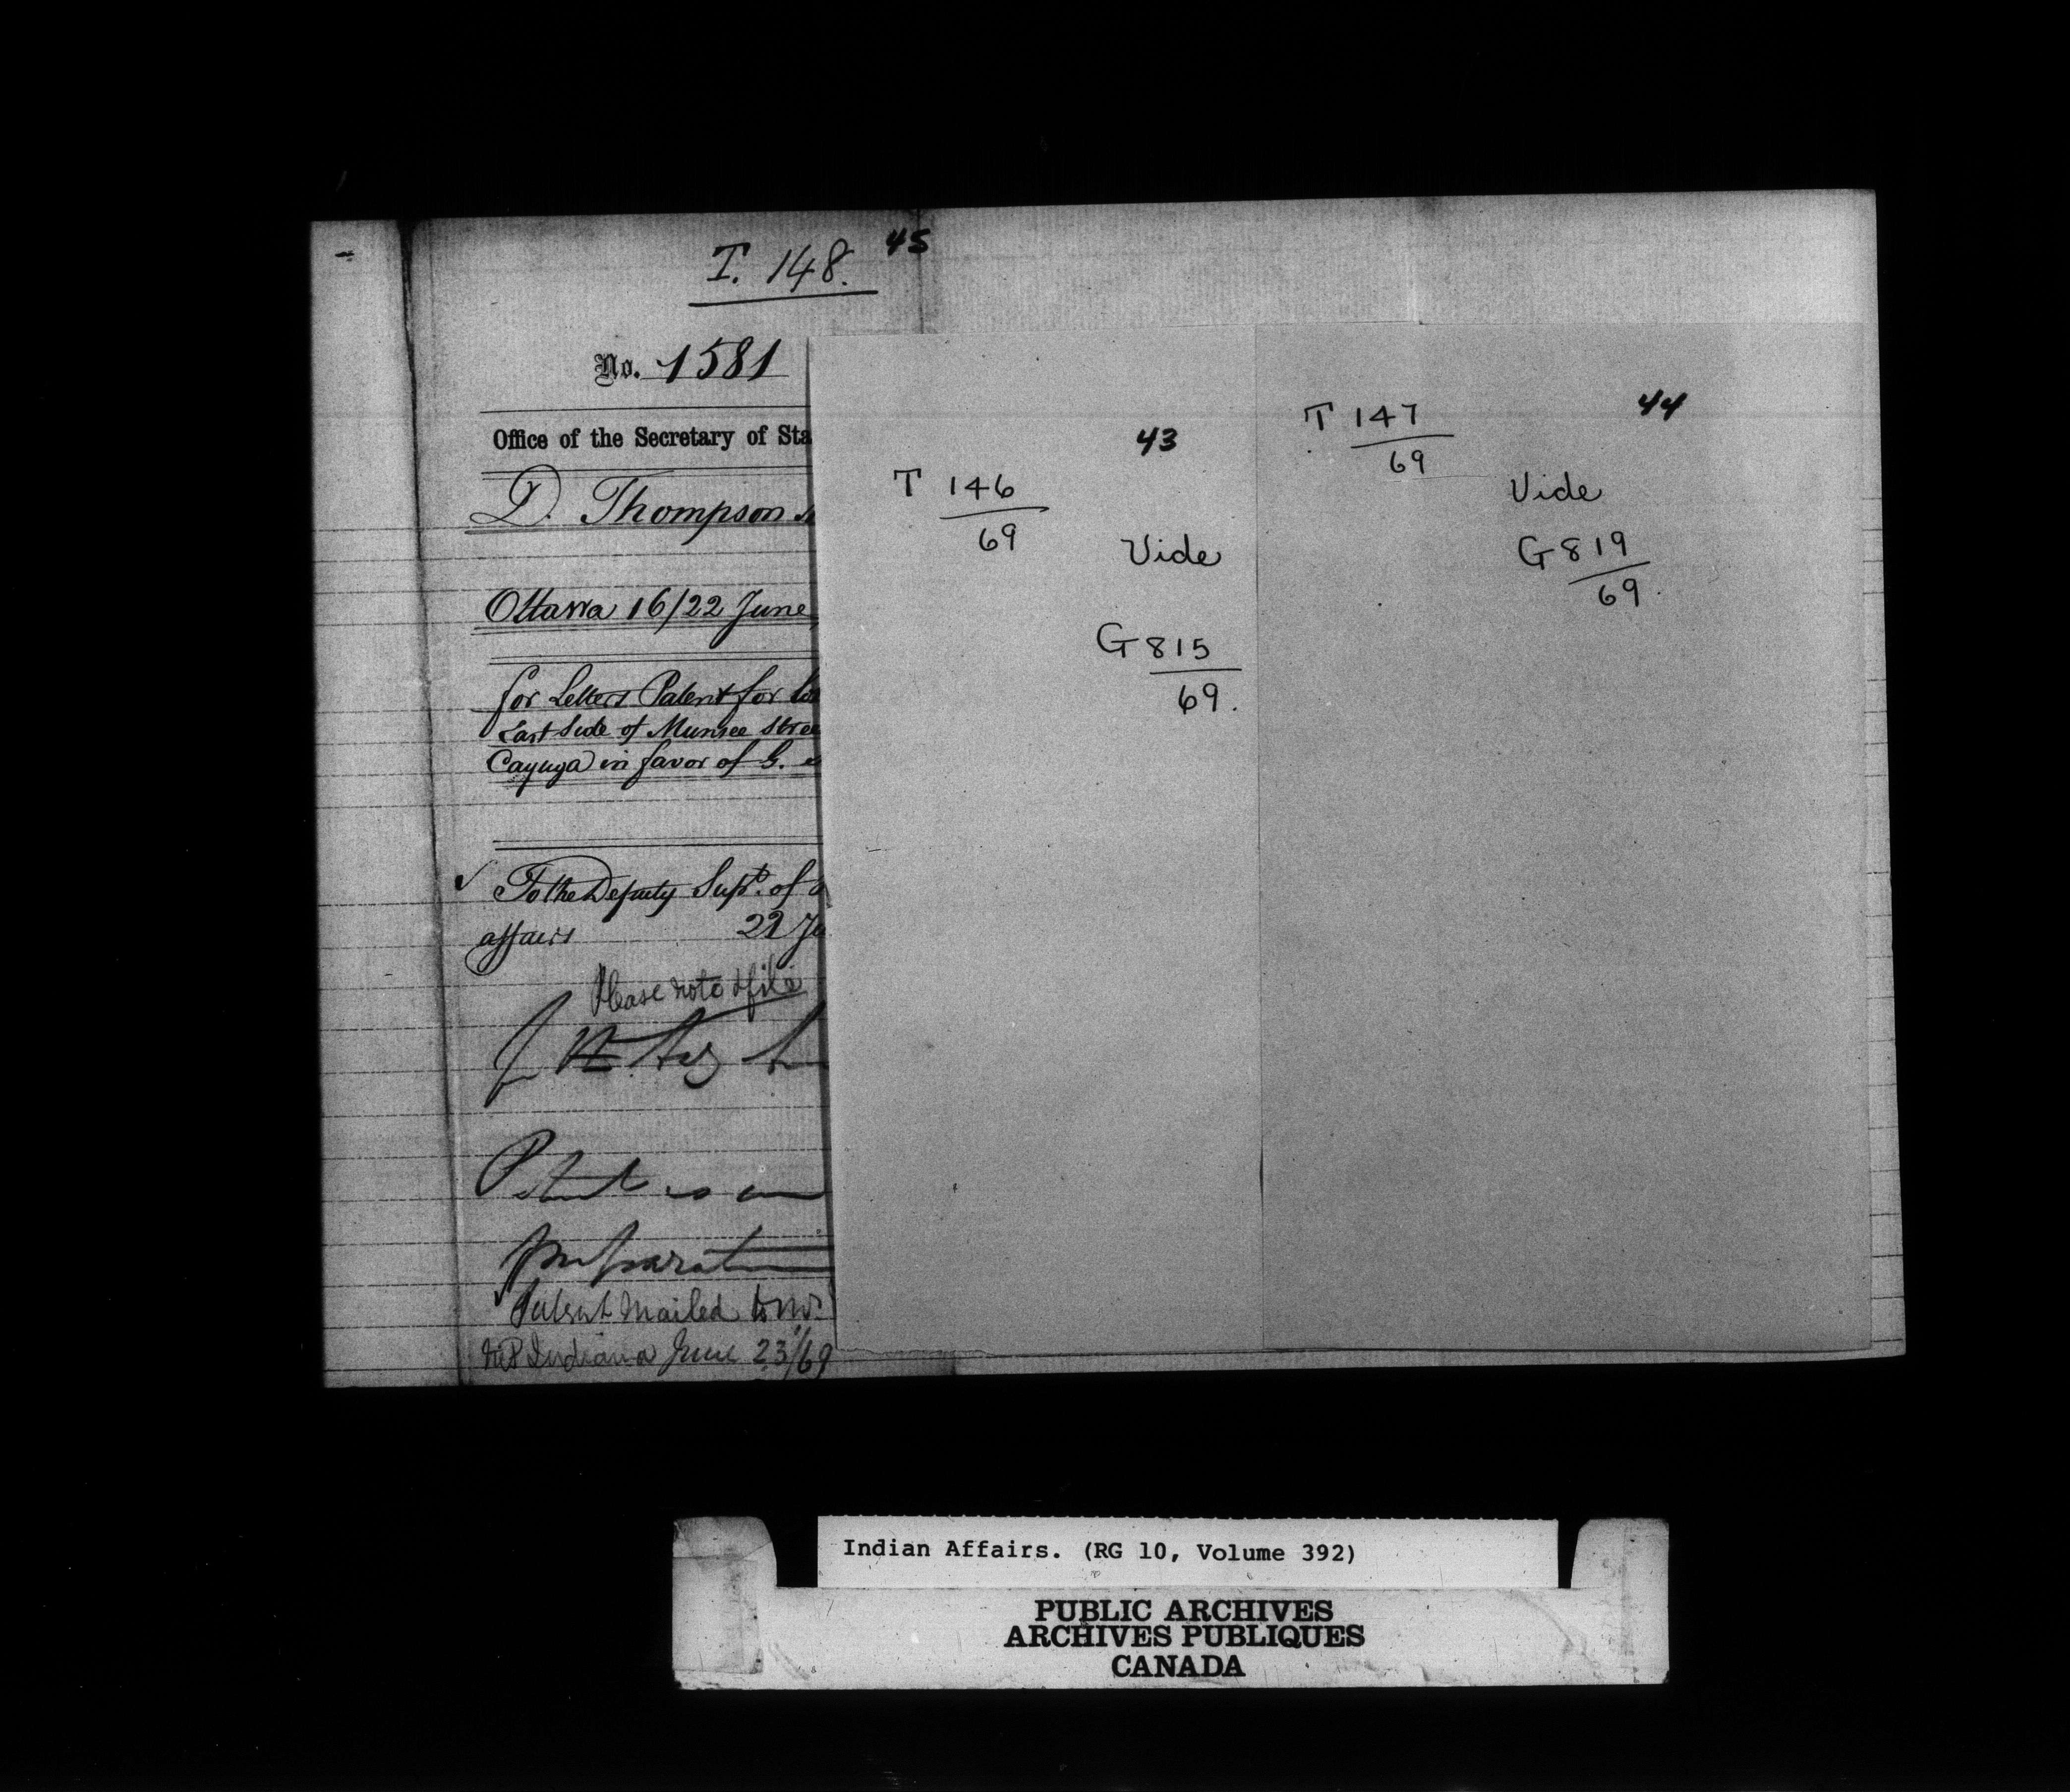 T. 148. 45
No. 1581
Office of the Secretary of Sta
D. Thompson
Ottawa 16/22 June
for Letters Patent for
East Side of Munsee Stree
Cayuga in favor of G.
To the Deputy Supt. of
affairs 22 Ju
Please note & file
Patent is
preparation
Patent Mailed to Mr.
Indiana June 23/69
43
T 146
69
Vide
G 815
69.
44
T 147
69
Vide
G 819
69.
Indian Affairs. (RG 10, Volume 392)
PUBLIC ARCHIVES
ARCHIVES PUBLIQUES
CANADA